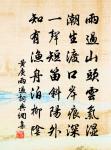 雨過山頭雲氣濕
潮生渡口岸痕深
一聲短笛斜陽外
知有漁舟泊柳陰
黄庚雨過詩